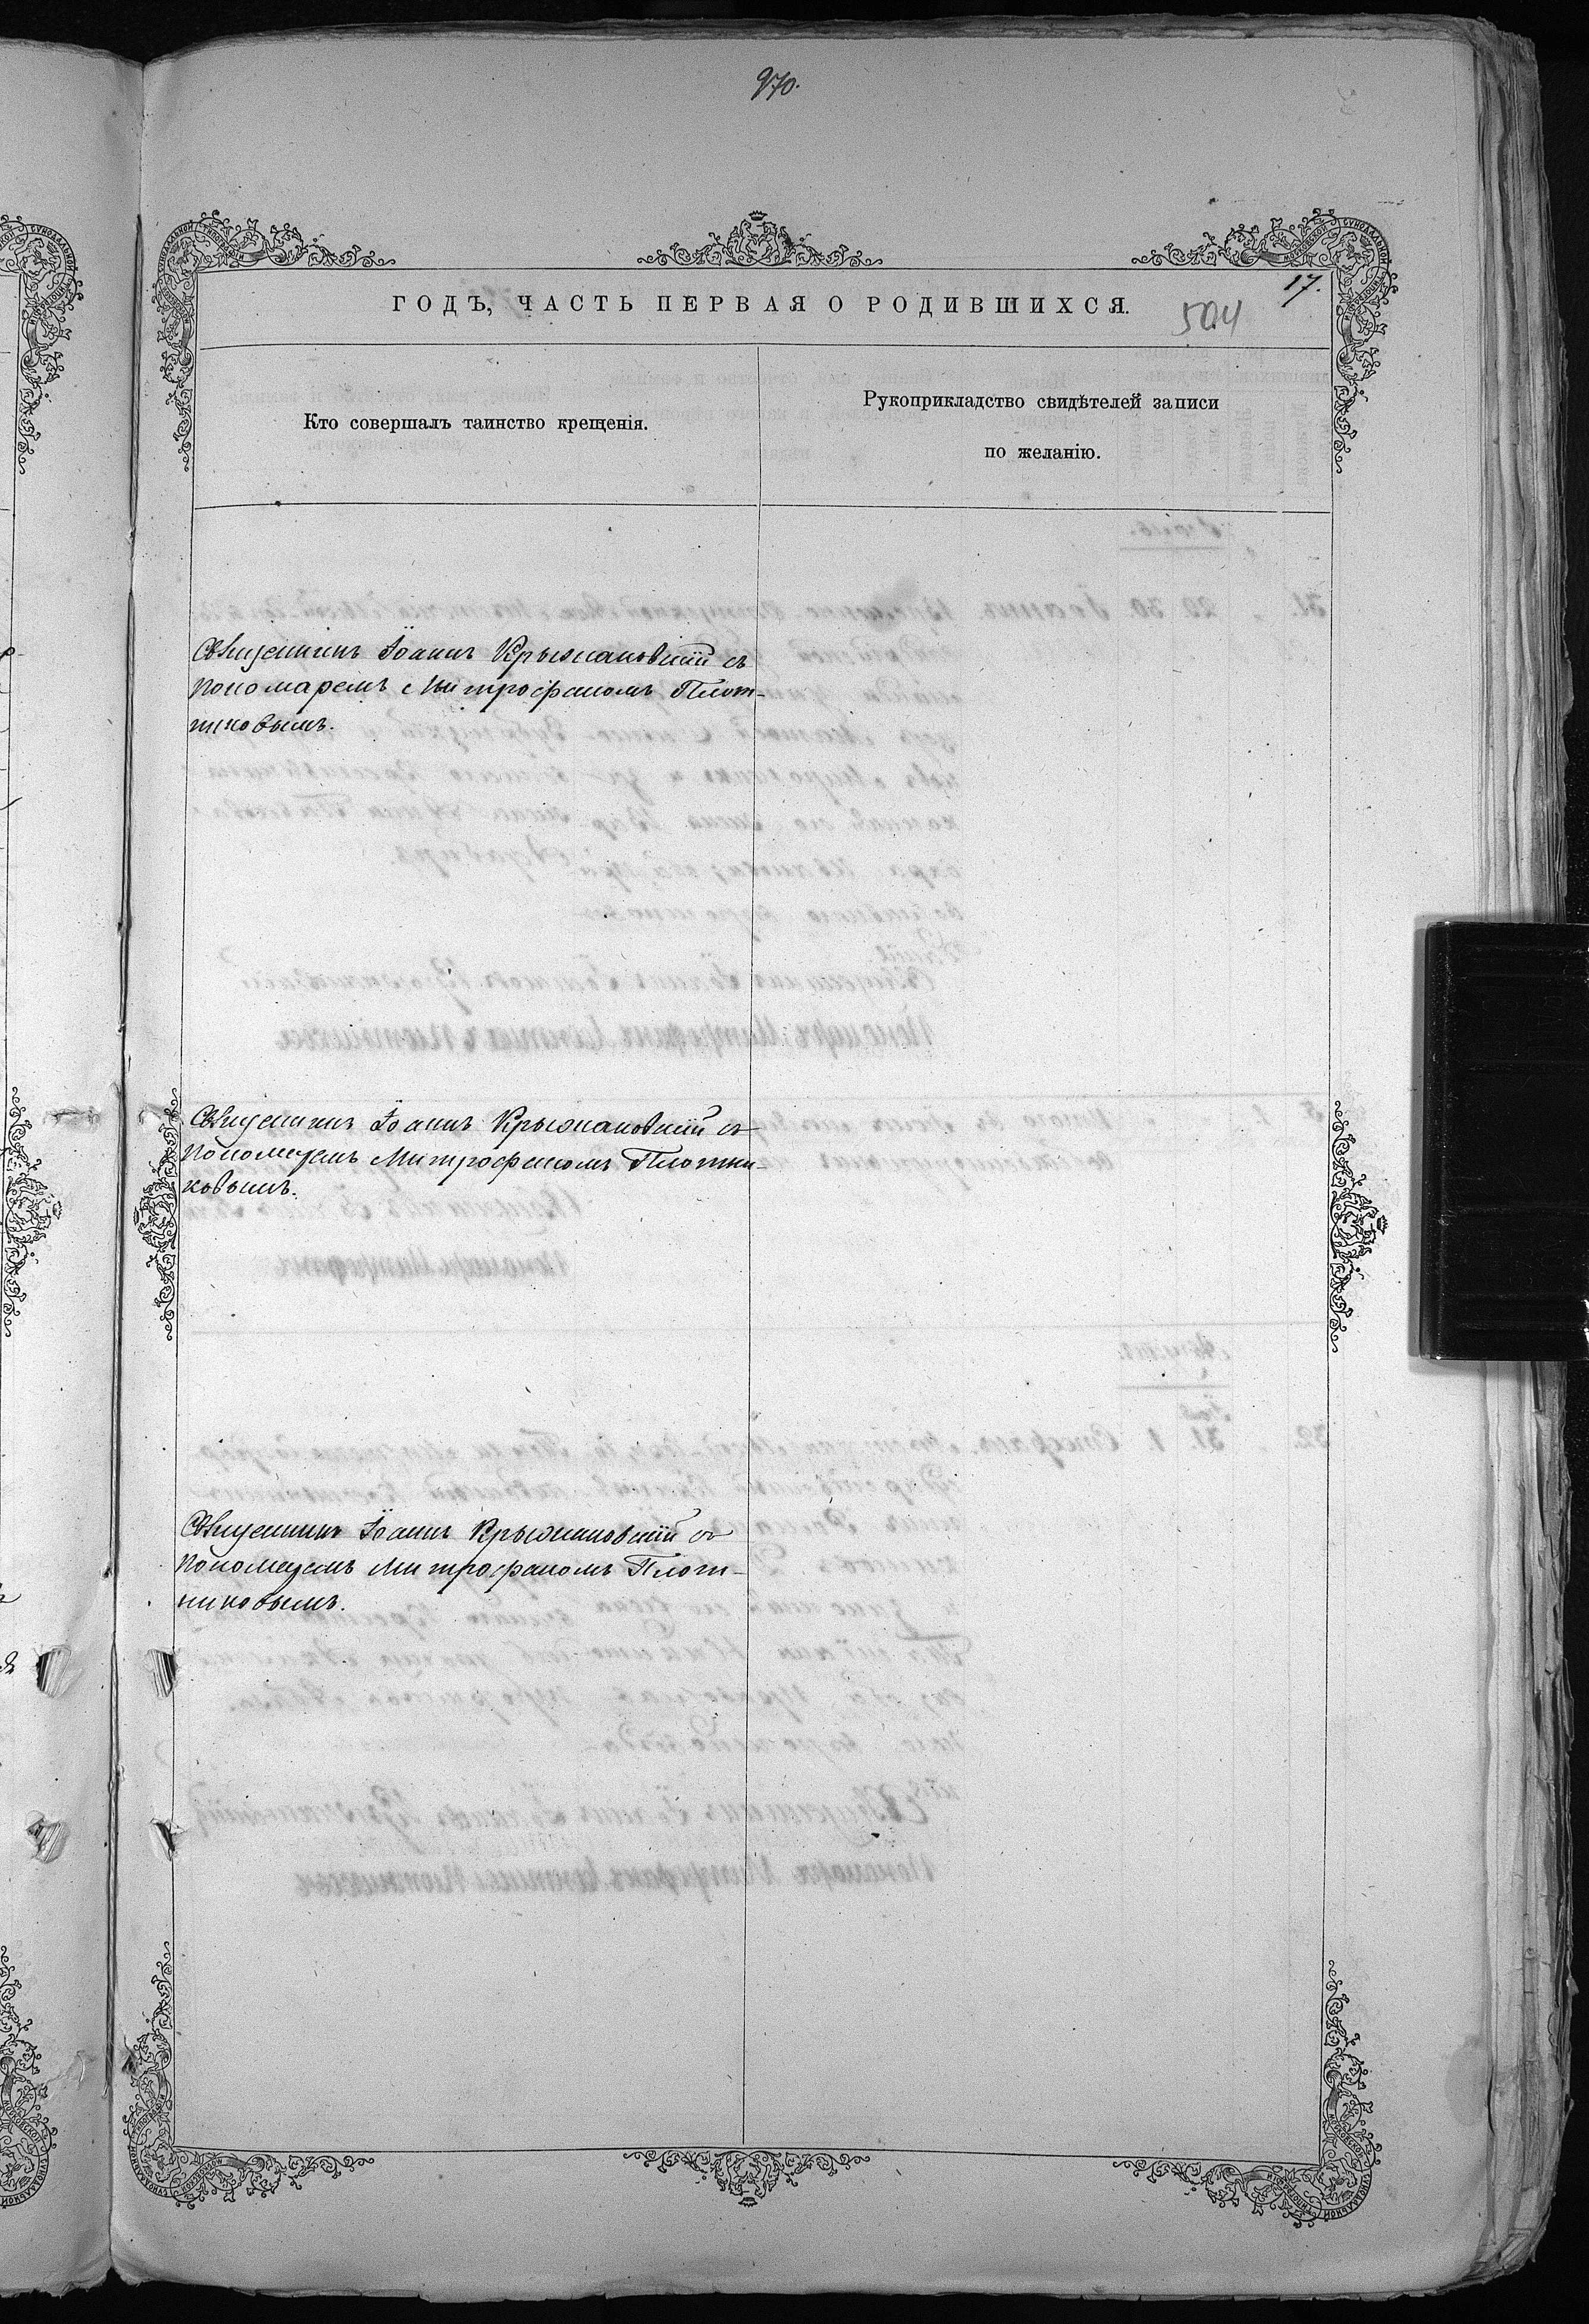 970.
17.
ГОДЪ, ЧАСТЬ ПЕРВАЯ О РОДИВШИХСЯ.
504
Кто совершалъ таинство крещенія.
Рукоприкладство свидѣтелей записи
по желанію.
Священникъ Іоаннъ Крыжановскій съ
пономаремъ Митрофаномъ Плот-
никовымъ.
Священникъ Іоаннъ Крыжановскій съ
пономаремъ Митрофаномъ Плотни-
ковымъ.
Священникъ Іоаннъ Крыжановскій съ
пономаремъ Митрофаномъ Плот-
никовымъ.